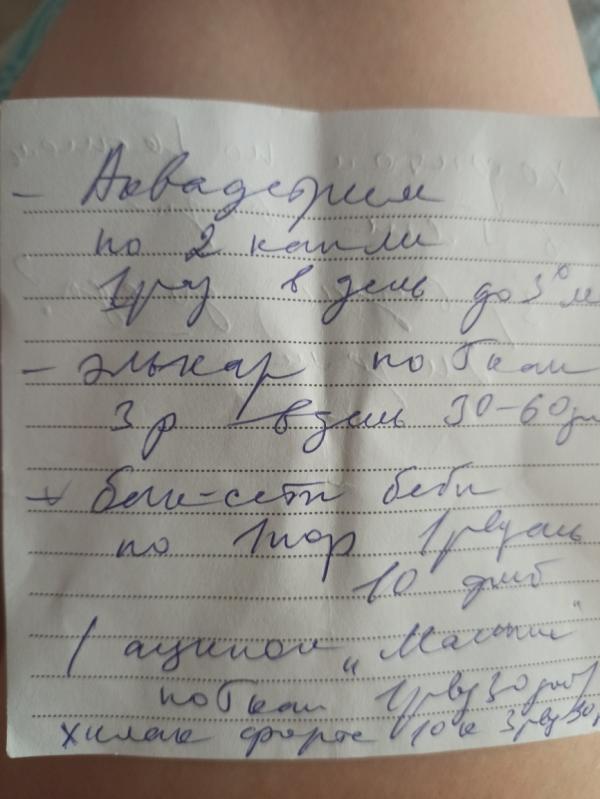 - Аквадетрим
по 2 капли
1 раз в день до 3
- элькар по 5 кап
3 р в день 30-60 дн
- бак-сет беби
по 1 пор 1 р в день
10 дней
/ аципол „Малыш"
по 5 кап 1 р в д 30 дней
хилак форте 10 к 3 р в д 30